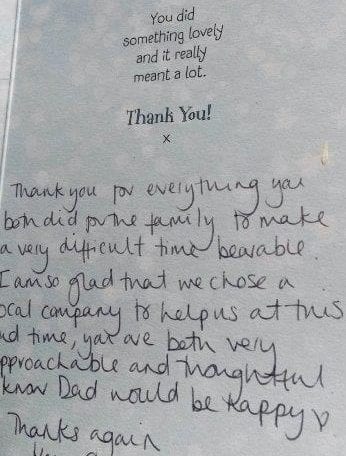 You did
something lovely
and it really
meant a lot.
Thank You!
x
Thank you for everything you
both did for the family to make
a very difficult time bearable.
I am so glad that we chose a
ocal company to help us at this
ad time, you are both very
pproachable and thoughtful
know Dad would be happy
Thanks again